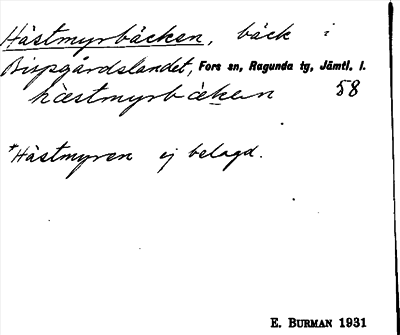 Hästmyrbäcken, bäck i
Bispgårdslandet, Fors sn, Ragunda tg, Jämtl. l.
hæstmyrbækən 58
*Hästmyren ej belagd.
E. BURMAN 1931